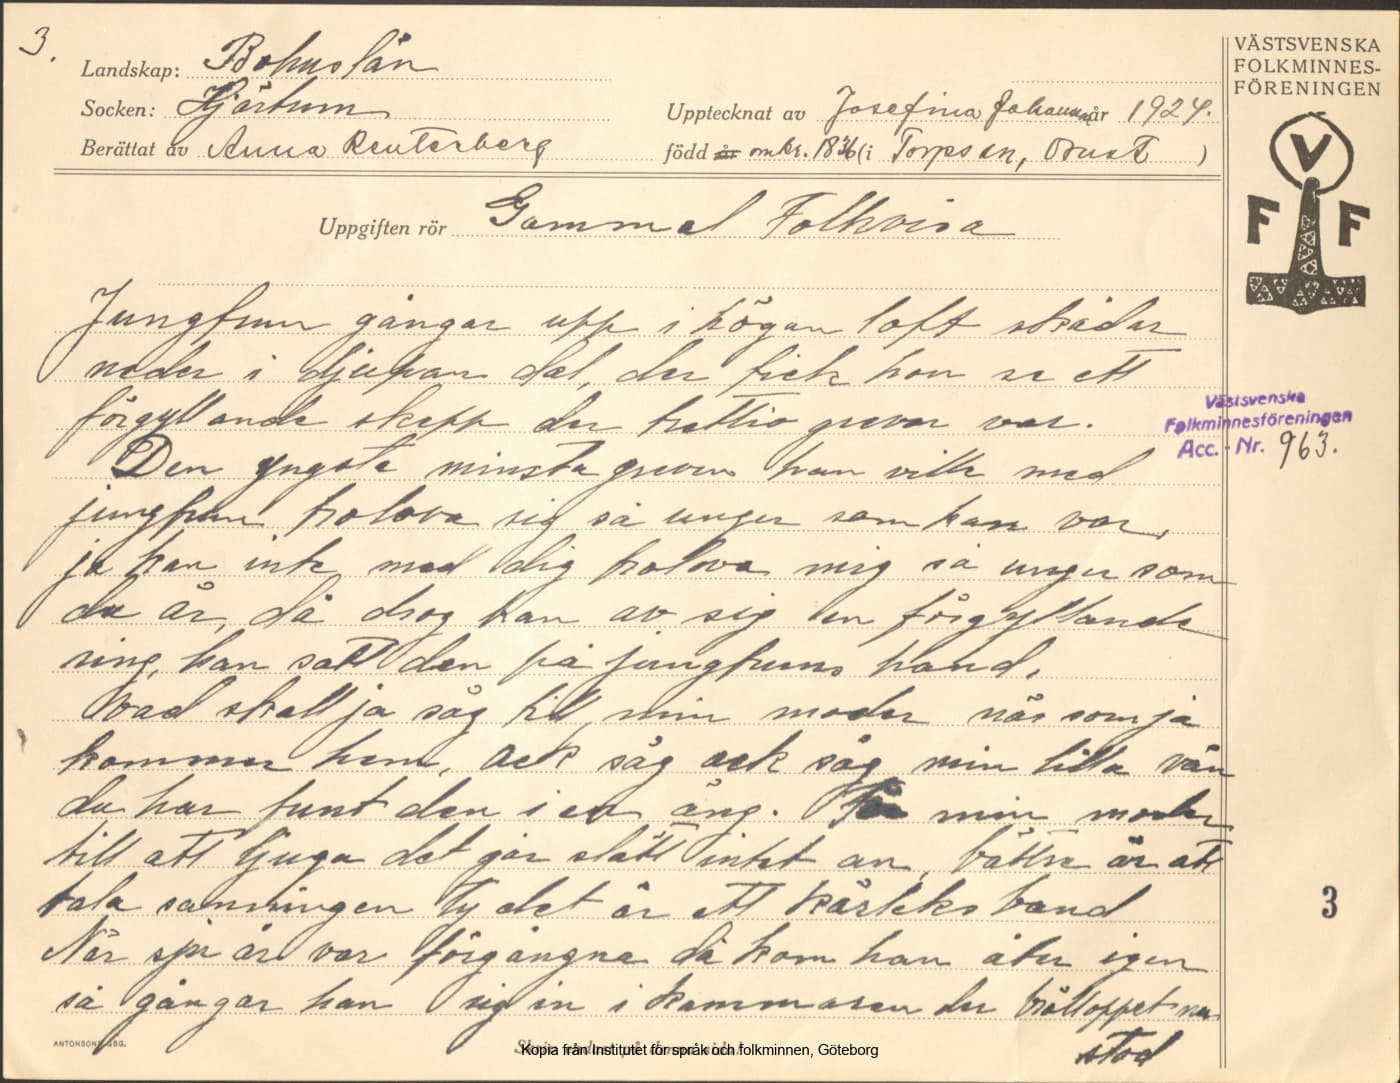 3.
Landskap: Bohuslän
Socken: Hjärtum
Upptecknat av Josefina Johansson år 1924.
Berättat av Anna Reuterberg
född år omkr. 1836 (i Torpsen, Orust )
Uppgiften rör Gammal Folkvisa
VÄSTSVENSKA
FOLKMINNES-
FÖRENINGEN
V
F F
Jungfrun gångar upp i högan loft skådar
neder i djupan dal, der fick hon se ett
förgyllande skepp der trettio grevar var.
Den yngsta minsta greven han ville med
jungfrun trolova sig så unger som han var,
ja kan inte med dig trolova mig så unger som
du är, då drog han av sig en förgyllande
ring, han satt den på jungfruns hand.
Vad skall ja säg till min moder när som ja
kommer hem, ack säg ack säg min lilla vän
du har funt den i en äng. För min moder
till att ljuga det går slätt intet an, bättre är att
tala sanningen ty det är ett kärleks band
När sju år var förgångna då kom han åter igen
så gångar han sig in i kammaren der brölloppet
stod
Västsvenska
Folkminnesföreningen
Acc. - Nr. 963.
3
ANTONSONS, GBG.
Kopia från Institutet för språk och folkminnen, Göteborg